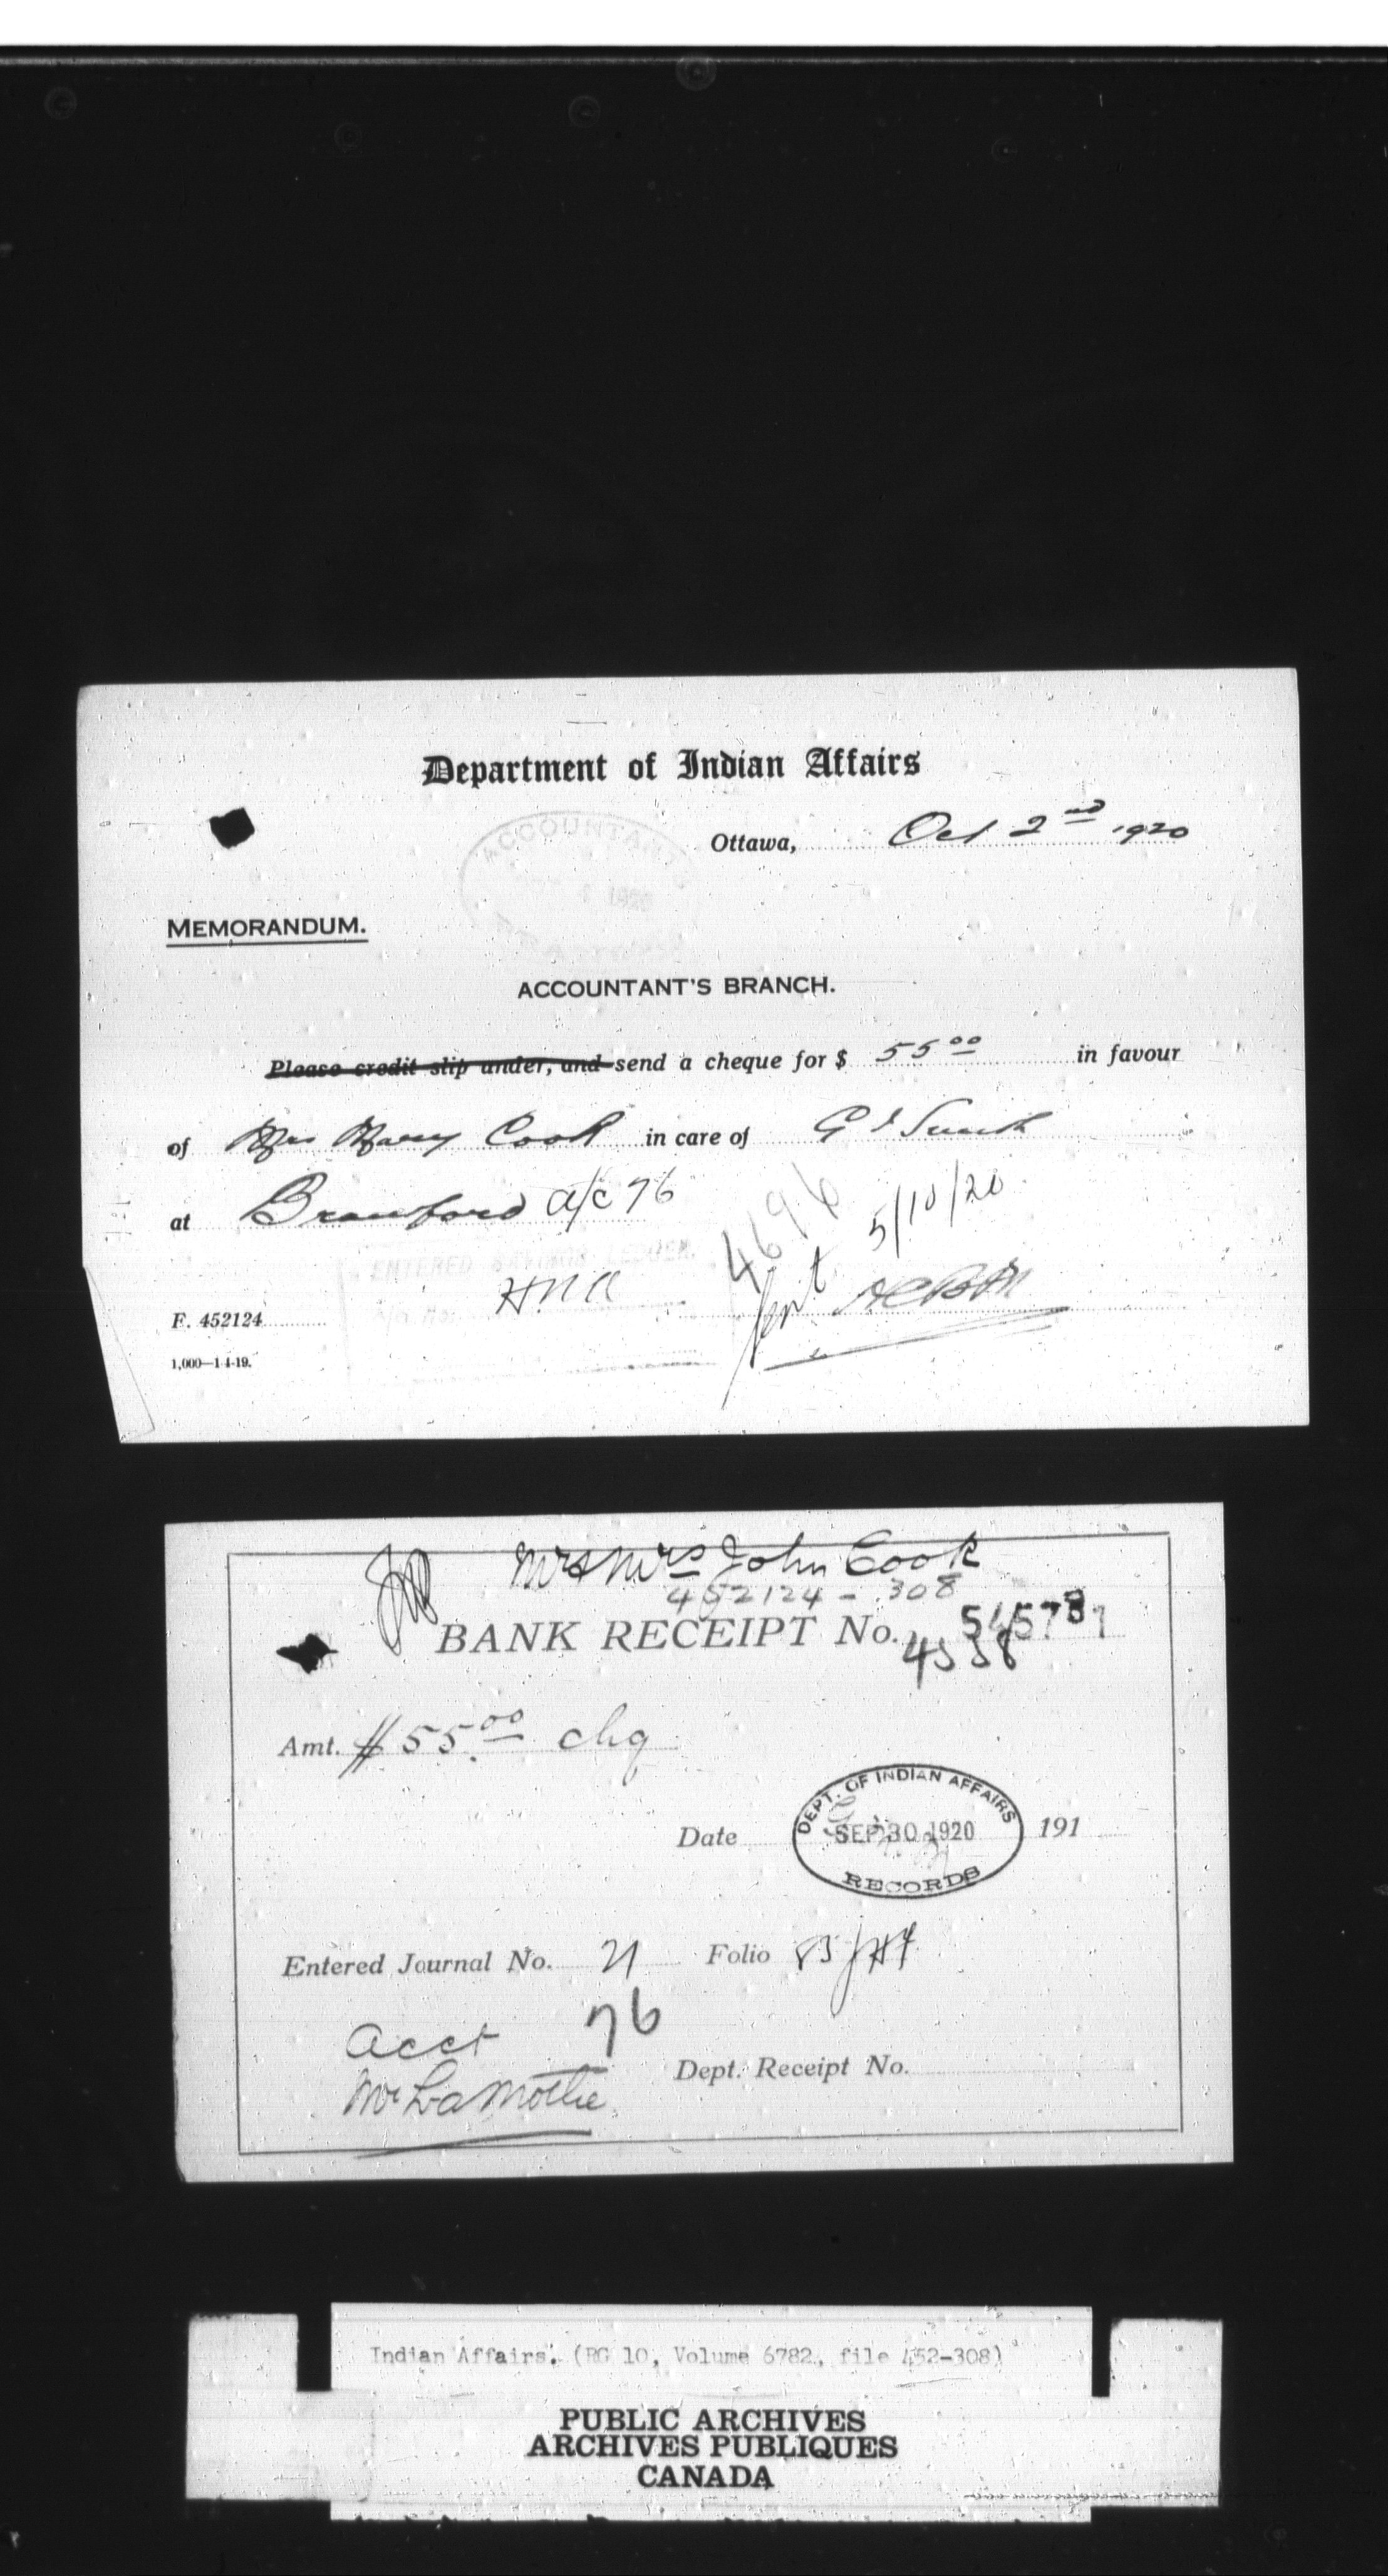 Department of Indian Affairs
Ottawa, Oct 2nd 1920
ACCOUNTANT'S
1920
MEMORANDUM.
ACCOUNTANT'S BRANCH.
Please credit slip under, and send a cheque for $ 55 00 in favour
of Mrs Mary Cook in care of G
at a/c 76
4696
5/10/20
ENTERED SAVINGS LEDGER.
F. 452124
1,000—1-4-19.
Mr & Mrs John Cook
452124 - 308
BANK RECEIPT No. 545787
Amt. $ 55.00 chq
DEPT. OF INDIAN AFFAIRS
Date SEP 30 1920 191
RECORDS
Entered Journal No. 21 Folio 83
Acct 76
Mr LaMothe
Dept. Receipt No.
Indian Affairs. (RG 10, Volume 6782, file 452-308)
PUBLIC ARCHIVES
ARCHIVES PUBLIQUES
CANADA